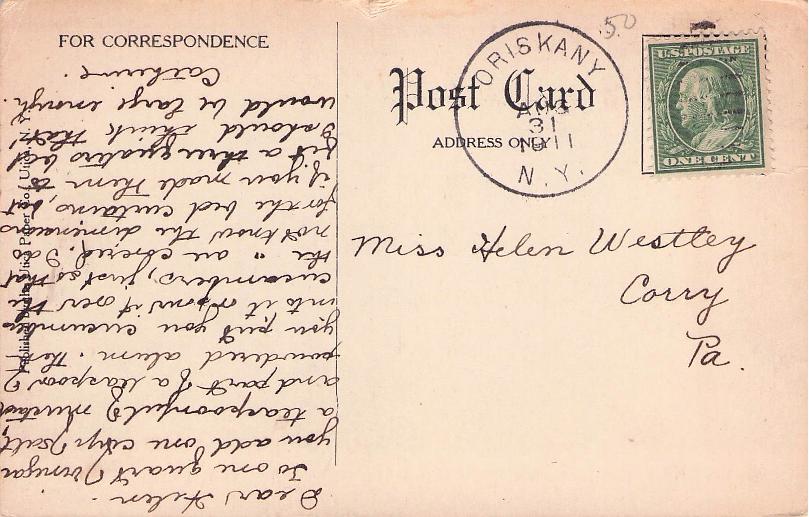 FOR CORRESPONDENCE
Dear Helen.
To one quart of vinegar
you add one cup of salt,
a teaspoonful of mustard
and part of a teaspoon of
powdered alum. Then
you put your cucumbers
into it or pour it over the
cucumbers, just so that
the " are covered. I do
not know the dimensions
for the bed curtains, but
if you made them to
fit a three quatro bed
I should think that
would be large enough.
Catherine.
Utica Paper Co., Utica, N. Y.
Post Card
ADDRESS ONLY
ORISKANY
AUG
31
1911
N.Y.
50
U.S. POSTAGE
ONE CENT
Miss Helen Westley
Corry
Pa.